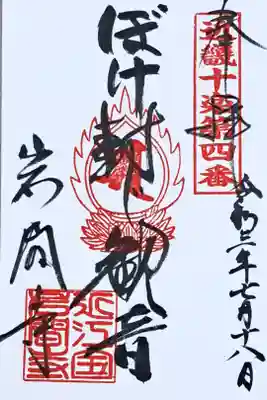 奉拝
近畿十楽第四番
令和三年七月十八日
ぼけ封じ観音
岩間寺
近江国
岩間寺